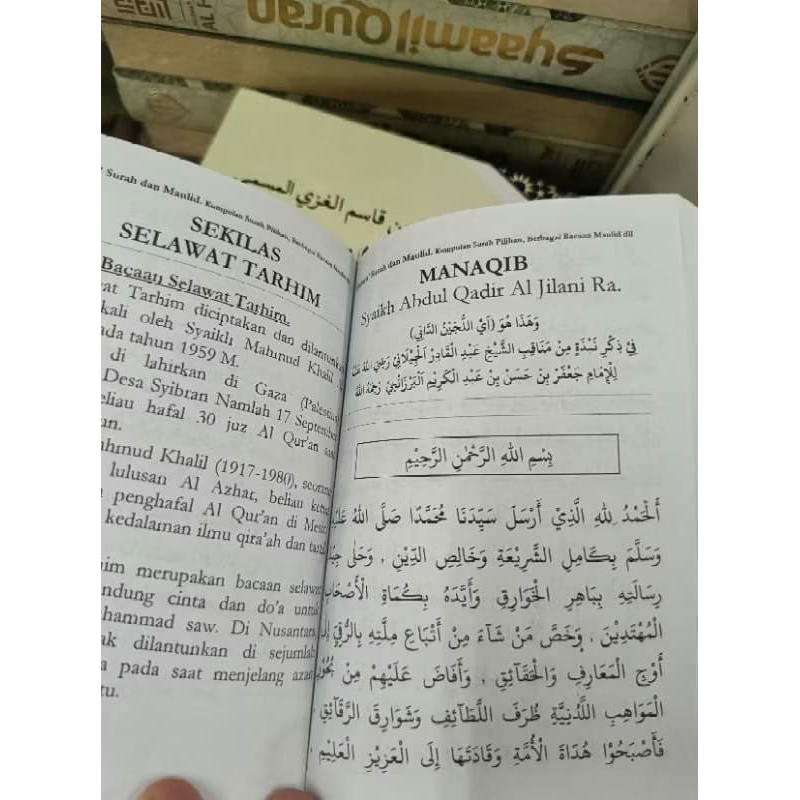 Syaamil Quran
ن قاسم الغزي المسمى
Surah dan Maulid. Kumpulan Surah Pilihan, Berbagai Bacaan
SEKILAS
SELAWAT TARHIM
Bacaan Selawat Tarhim.
at Tarhim diciptakan dan dilantunkan
kali oleh Syaikh Mahmud Khalil
ada tahun 1959 M.
di lahirkan di Gaza (Palestina
Desa Syibran Namlah 17 September
eliau hafal 30 juz Al Qur'an saat
un.
ahmud Khalil (1917-1980), seorang
lulusan Al Azhar, beliau
penghafal Al Qur'an di Mesir
kedalaman ilmu qira'ah dan
im merupakan bacaan selawat
ndung cinta dan do'a untuk
hammad saw. Di Nusantara,
ak dilantunkan di sejumlah
a pada saat menjelang azan
tu.
Surah dan Maulid. Kumpulan Surah Pilihan, Berbagai Bacaan Maulid dll
MANAQIB
Syaikh Abdul Qadir Al Jilani Ra.
وَهَذَا هُوَ (اَيْ اللُّجَيْنُ الدَّانِي)
فِيْ ذِكْرِ نَبْذَةٍ مِنْ مَنَاقِبِ الشَّيْخِ عَبْدِ الْقَادِرْ اَلْجِيْلَانِيْ رَضِيَ اللهُ عَنْهُ
لِلْإِمَامِ جَعْفَرْ بِنْ حَسَنْ بِنْ عَبْدِ الْكَرِيْمِ اَلْبَرْزَانْجِيْ رَحِمَهُ اللهُ
بِسْمِ اللهِ الرَّحْمٰنِ الرَّحِيْمِ
اَلْحَمْدُ لِلهِ الَّذِيْ أَرْسَلَ سَيِّدَنَا مُحَمَّدًا صَلَّى اللهُ عَلَيْهِ
وَسَلَّمَ بِكَامِلِ الشَّرِيْعَةِ وَخَالِصِ الدِّيْنِ , وَحَلَى جِيْدَ
رِسَالَتِهِ بِبَاهِرِ الْخَوَارِقِ وَأَيَّدَهُ بِكُمَاةِ الْأَصْحَابِ
الْمُهْتَدِيْنَ , وَخَصَّ مَنْ شَاءَ مِنْ أَتْبَاعِ مِلَّتِهِ بِالرُّقِيِّ إِلَى
أَوْجِ الْمَعَارِفِ وَالْحَقَآئِقِ , وَأَفَاضَ عَلَيْهِمْ مِنْ بُحُوْرِ
الْمَوَاهِبِ اللَّدُنِيَّةِ ظُرَفَ اللَّطَآئِفِ وَشَوَارِقَ الرَّقَآئِقِ ,
فَأَصْبَحُوْا هُدَاةَ الْأُمَّةِ وَقَادَتَهَا إِلَى الْعَزِيْزِ الْعَلِيْمِ ,